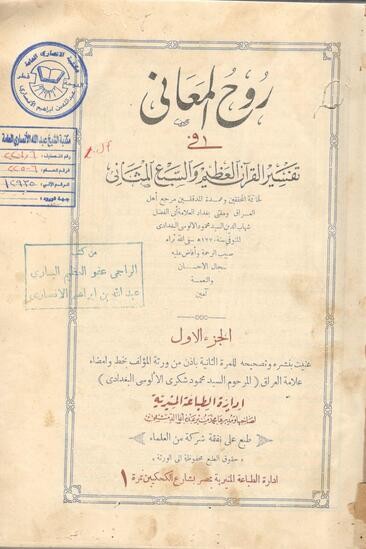 روح المعاني
في
تفسير القرآن العظيم والسبع المثاني
لخاتمة المحققين وعمدة المدققين مرجع أهل
العراق ومفتى بغداد العلامة أبي الفضل
شهاب الدين السيد محمود الآلوسي البغدادي
المتوفى سنة ١٢٧٠ هـ سقى الله ثراه
صبيب الرحمة وأفاض عليه
سجال الاحسان
والنعمة
آمين
الجزء الاول
عنيت بنشره وتصحيحه للمرة الثانية باذن من ورثة المؤلف بخط وامضاء
علامة العراق ( المرحوم السيد محمود شكري الألوسي البغدادي )
ادارة الطباعة المنيرية
طبع على نفقة شركة من العلماء
حقوق الطبع محفوظة الى الورثة
ادارة الطباعة المنيرية بمصر بشارع الكحكيين نمرة ١
مكتبة الانصاري العامة
قطر
عبدالله بن ابراهيم الأنصاري
مكتبة الشيخ عبد الله الأنصاري العامة
من كتب
الراجي عفو العظيم الباري
عبد الله بن ابراهيم الانصاري